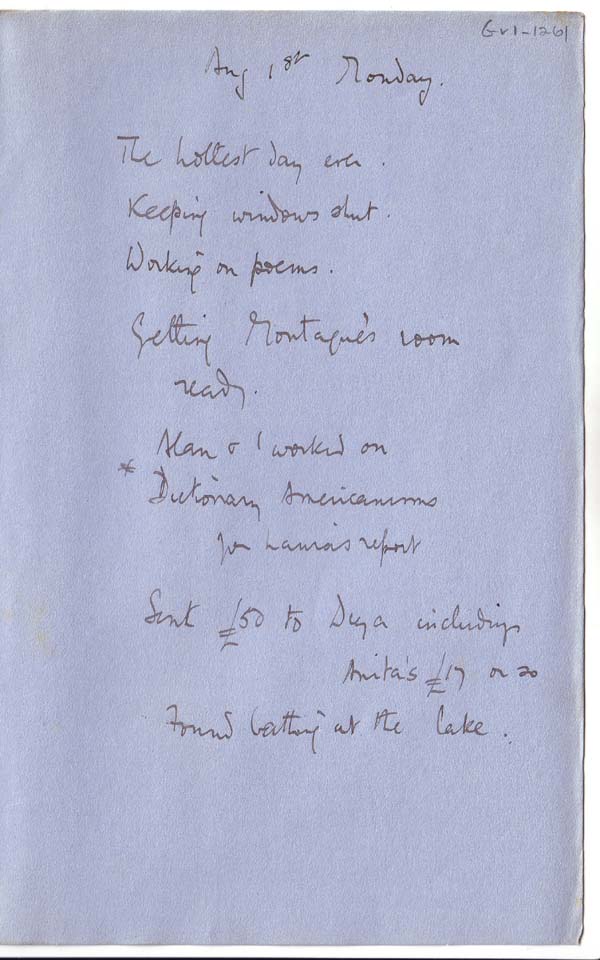 Gv1-1261
Aug 1st Monday.
The hottest day ever.
Keeping windows shut.
Working on poems.
Getting Montague's room
ready.
Alan & I worked on
* Dictionary Americanisms
for Laura's report
Sent £50 to Deya including
Anita's £17 or so
Found bathing at the lake.